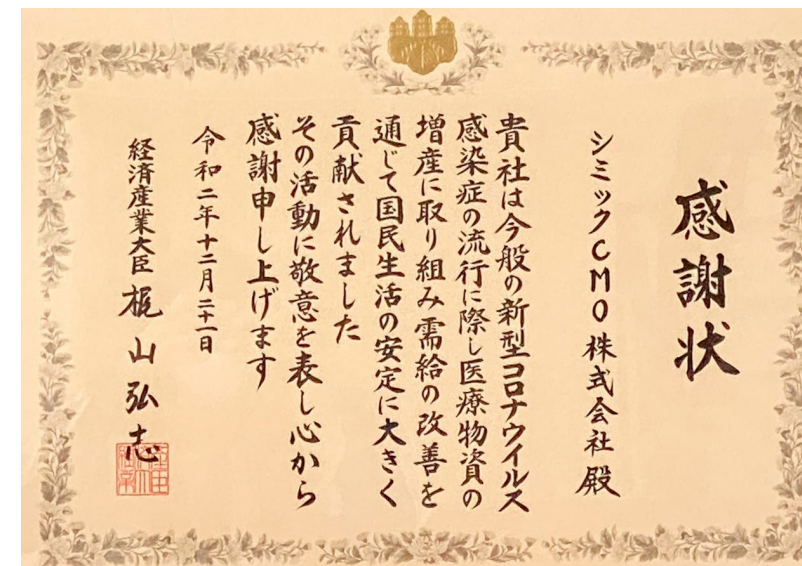 感謝状
シミックCMO株式会社 殿
貴社は今般の新型コロナウイルス
感染症の流行に際し医療物資の
増産に取り組み需給の改善を
通じて国民生活の安定に大きく
貢献されました
その活動に敬意を表し心から
感謝申し上げます
令和二年十二月二十一日
経済産業大臣 梶山弘志